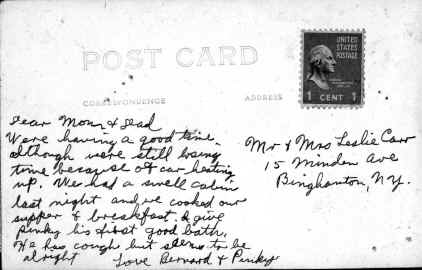 POST CARD
CORRESPONDENCE
ADDRESS
UNITED
STATES
POSTAGE
1 CENT 1
Dear Mom & Dad
Were having a good time.
although were still losing
time because of car heating
up. We had a swell cabin
last night and we cooked our
supper & breakfast. I give
Pinky his first good bath.
He has cough but seems to be
alright
Love Bernard & Pinky
Mr & Mrs Leslie Carr
15 Minden Ave
Binghamton, N.Y.